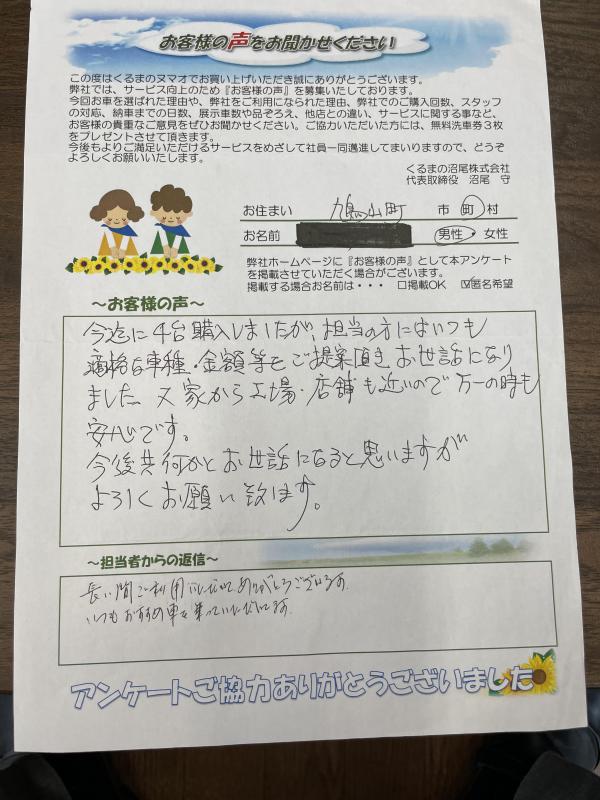 お客様の声をお聞かせください
この度はくるまのヌマオでお買い上げいただき誠にありがとうございます。
弊社では、サービス向上のため『お客様の声』を募集いたしております。
今回お車を選ばれた理由や、弊社をご利用になられた理由、弊社でのご購入回数、スタッフ
の対応、納車までの日数、展示車数や品ぞろえ、他店との違い、サービスに関する事など、
お客様の貴重なご意見をぜひお聞かせください。ご協力いただいた方には、無料洗車券3枚
をプレゼントさせて頂きます。
今後もよりご満足いただけるサービスをめざして社員一同邁進してまいりますので、どうぞ
よろしくお願いいたします。
くるまの沼尾株式会社
代表取締役 沼尾 守
お住まい 鳩山町 市・町・村
お名前 男性・女性
弊社ホームページに『お客様の声』として本アンケート
を掲載させていただく場合がございます。
掲載する場合お名前は・・・ □掲載OK ☑匿名希望
～お客様の声～
今迄に4台購入しましたが、担当の方にはいつも
適格な車種・金額等をご提案頂きお世話になり
ました 又家から工場・店舗も近いので万一の時も
安心です。
今後共何かとお世話になると思いますが
よろしくお願い致します。
～担当者からの返信～
長い間ご利用いただいてありがとうございます
いつもおすすめ車を乗っていただいてます
アンケートご協力ありがとうございました